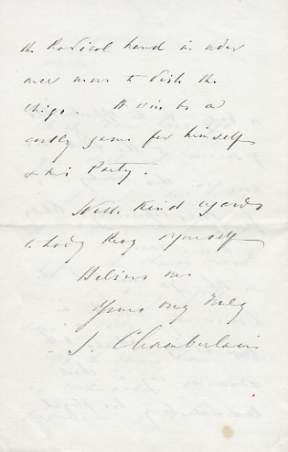 the Radical hand in order
once more to dish the
Whigs. It will be a
costly game for himself
& his Party.
With kind regards
to Lady & yourself
Believe me
Yours very truly
J. Chamberlain